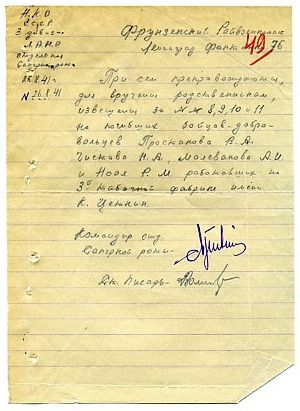 Н.К.О
С.С.С.Р
3 дивизия
Л.А.Н.О
отдельная
Саперная рота
26.8.41г.
N 26.8.41
Фрунзенский Райвоенкомат
Ленинград Фонт 49 76
При сем препровождаются,
для вручения родственникам,
извещения за №№ 8,9,10 и 11
на погибших бойцов-добро-
вольцев Просканова В.А.
Чискова Н.А., Малеванова А.И
и Ноля Р.М. работавших на
3й табачной фабрике имени
К. Цеткин
Командир отд.
Саперной роты-
Дел. Писарь-